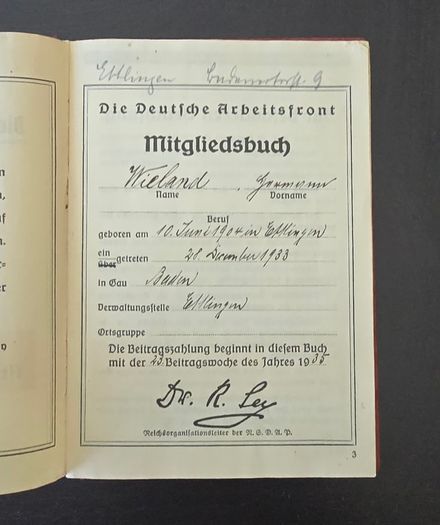 Ettlingen 9
Die Deutsche Arbeitsfront
Mitgliedsbuch
Wieland, Hermann
Name Vorname
Beruf
geboren am 10. Juni 1904 in Ettlingen
ein
über getreten 28. Dezember 1933
in Gau Baden
Verwaltungsstelle Ettlingen
Ortsgruppe
Die Beitragszahlung beginnt in diesem Buch
mit der 23. Beitragswoche des Jahres 1935
Dr. R. Ley
Reichsorganisationsleiter der N.S.D.A.P.
3